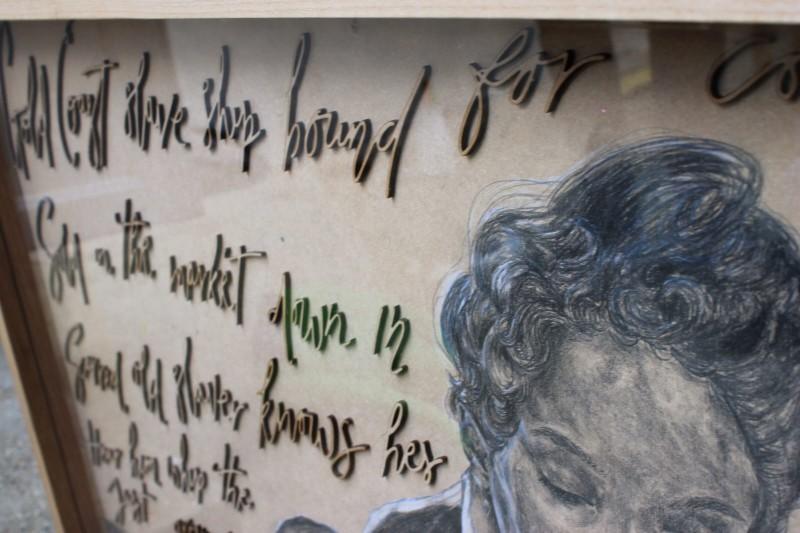 Gold Coast slave ship bound for co
Sold in the market down in
Scarred old slaver knows hes
Hear him whip the
just